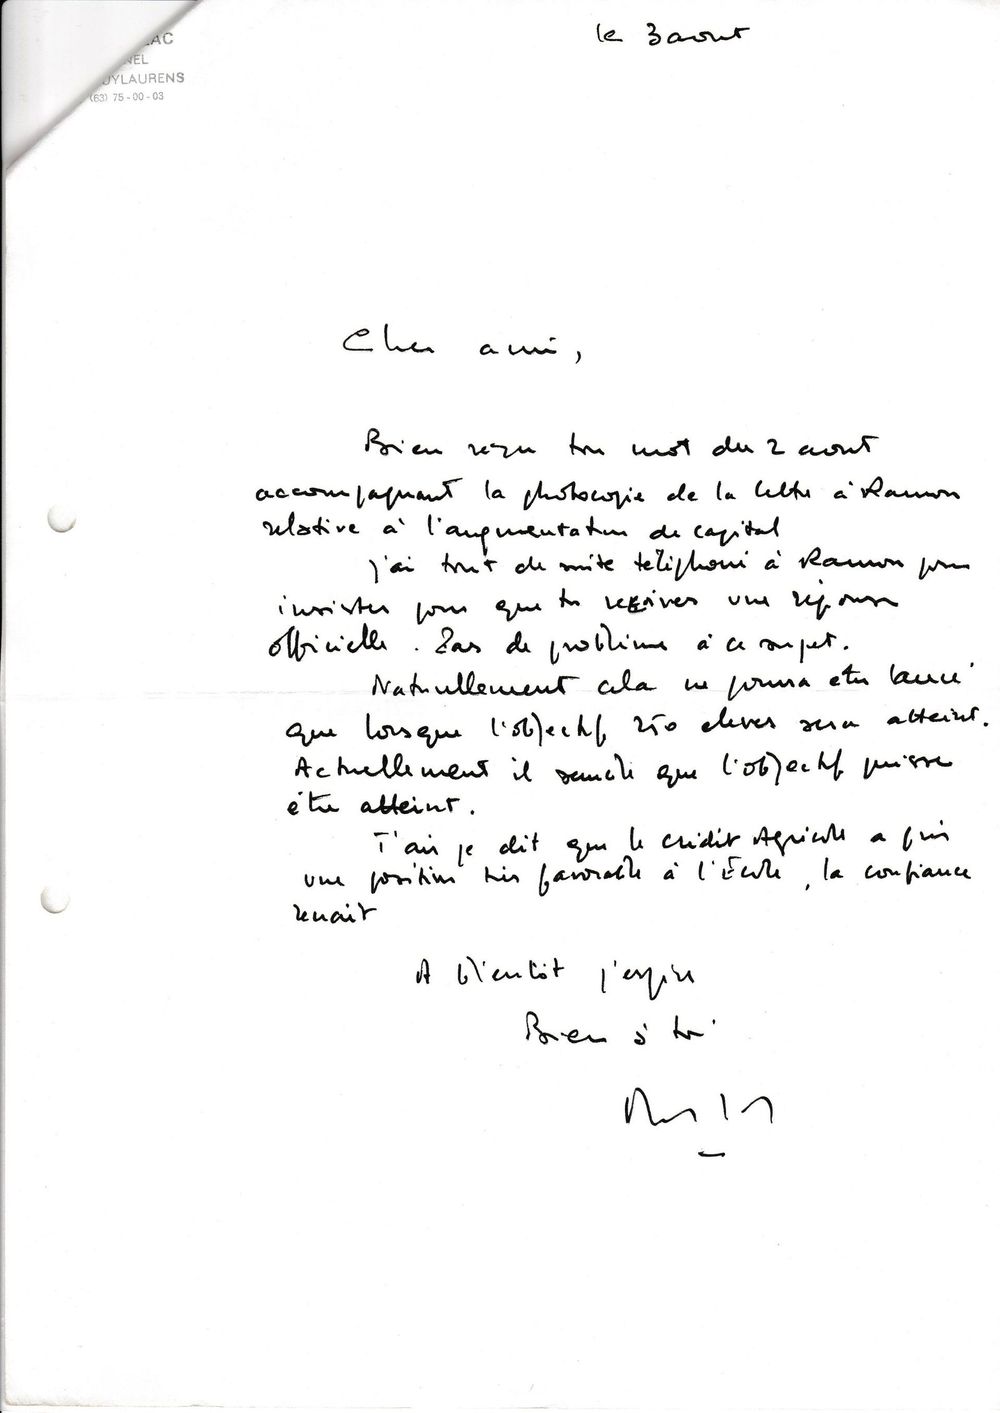 AC
NEL
UYLAURENS
(63) 75-00-03
le 3 aout
Cher ami,
Bien reçu ton mot du 2 aout
accompagnant la photocopie de la lettre à Ramon
relative à l'augmentation de capital
J'ai tout de suite téléphoné à Ramon pour
insister pour que tu reçoives une réponse
officielle. Pas de problème à ce sujet.
Naturellement cela ne pourra être lancé
que lorsque l'objectif 250 élèves sera atteint.
Actuellement il semble que l'objectif puisse
être atteint.
T'ais je dit que le Crédit Agricole a pris
une position très favorable à l'École, la confiance
renait
A bientôt j'espère
Bien à toi